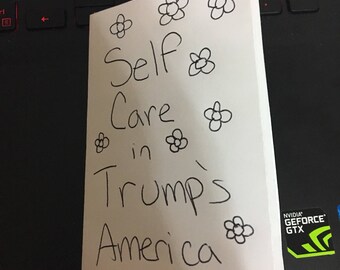 Self
Care
in
Trump's
America
NVIDIA
GEFORCE
GTX